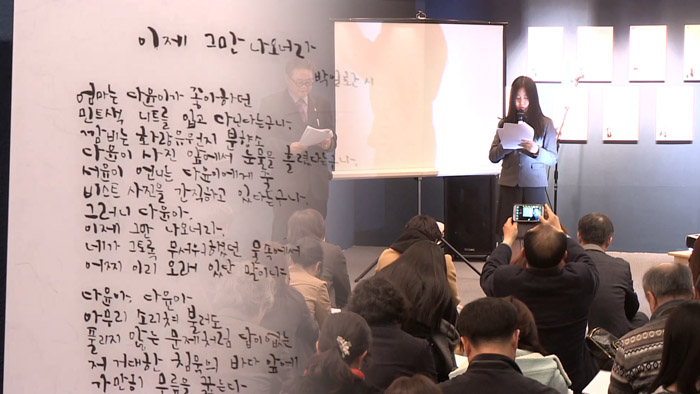 이제 그만 나오너라
박일환 시
엄마는 다윤이가 좋아하던
민트색 니트를 입고 다닌다는구나.
깜비는 화랑유원지 분향소
다윤이 사진 앞에서 눈물을 흘렸다는구나.
서윤이 언니는 다윤이에게 줄
비스트 사진을 간직하고 있다는구나.
그러니 다윤아.
이제 그만 나오너라.
네가 그토록 무서워했던 물속에서
어찌 이리 오래 있단 말이니
다윤아, 다윤아
아무리 소리쳐 불러도
풀리지 않는 문제처럼 답이 없는
저 거대한 침묵의 바다 앞에
가만히 무릎을 꿇는다